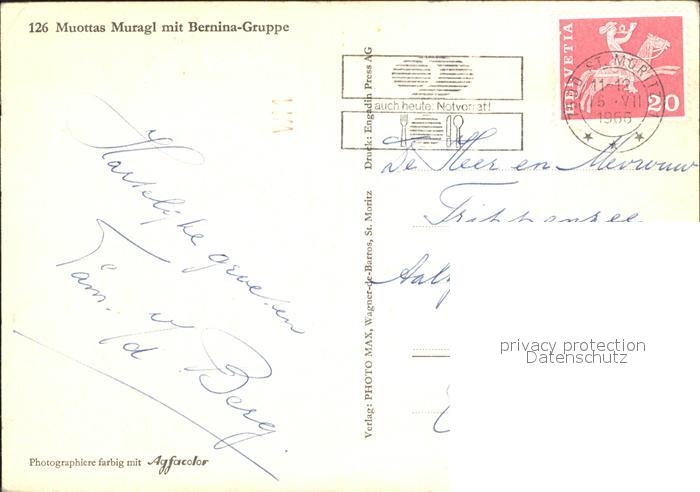 126 Muottas Muragl mit Bernina-Gruppe
Hartelijke groeten
Fam. v/d Berg.
Photographiere farbig mit Agfacolor
Verlag: PHOTO MAX, Wagner-de-Barros, St. Moritz Druck: Engadin Press AG
auch heute: Notvorrat!
ST. MORITZ
11-12
VII
HELVETIA
20
De Heer en Mevrouw
privacy protection
Datenschutz